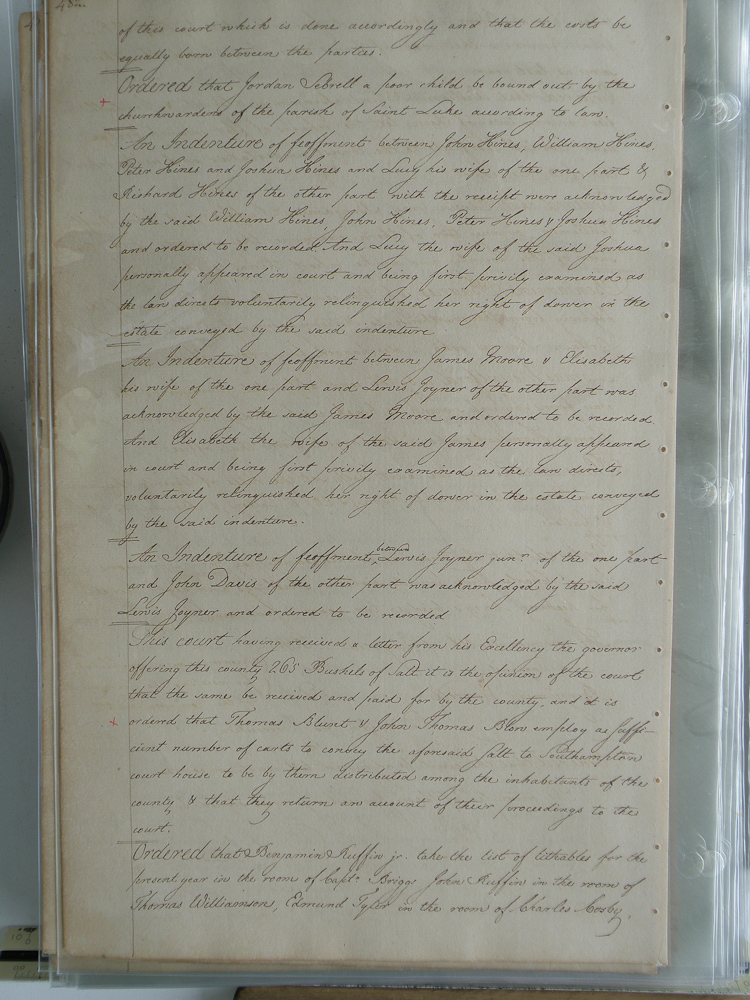 of this court which is done accordingly and that the costs be
equally born between the parties.
Ordered that Jordan Sebrell a poor child be bound out by the
churchwardens of the parish of Saint Luke according to law.
An Indenture of feoffment between John Hines, William Hines,
Peter Hines and Joshua Hines and Lucy his wife of the one part &
Richard Hines of the other part with the receipt were acknowledged
by the said William Hines, John Hines, Peter Hines & Joshua Hines
and ordered to be recorded And Lucy the wife of the said Joshua
personally appeared in court and being first privily examined as
the law directs voluntarily relinquished her right of dower in the
estate conveyed by the said indenture
An Indenture of feoffment between James Moore & Elisabeth
his wife of the one part and Lewis Joyner of the other part was
acknowledged by the said James Moore and ordered to be recorded.
And Elisabeth the wife of the said James personally appeared
in court and being first privily examined as the law directs,
voluntarily relinquished her right of dower in the estate conveyed
by the said indenture.
An Indenture of feoffment between Lewis Joyner junr. of the one part
and John Davis of the other part was acknowledged by the said
Lewis Joyner and ordered to be recorded
This court having received a letter from his Excellency the governor
offering this county 265 Bushels of Salt it is the opinion of the court
that the same be received and paid for by the county, and it is
ordered that Thomas Blunt & John Thomas Blow employ as suffi-
cient number of carts to convey the aforesaid Salt to Southampton
court house to be by them distributed among the inhabitants of the
county & that they return an account of their proceedings to the
court.
Ordered that Benjamin Ruffin jr. take the list of tithables for the
present year in the room of Capt. Briggs John Ruffin in the room of
Thomas Williamson, Edmund Tyler in the room of Charles Cosby,